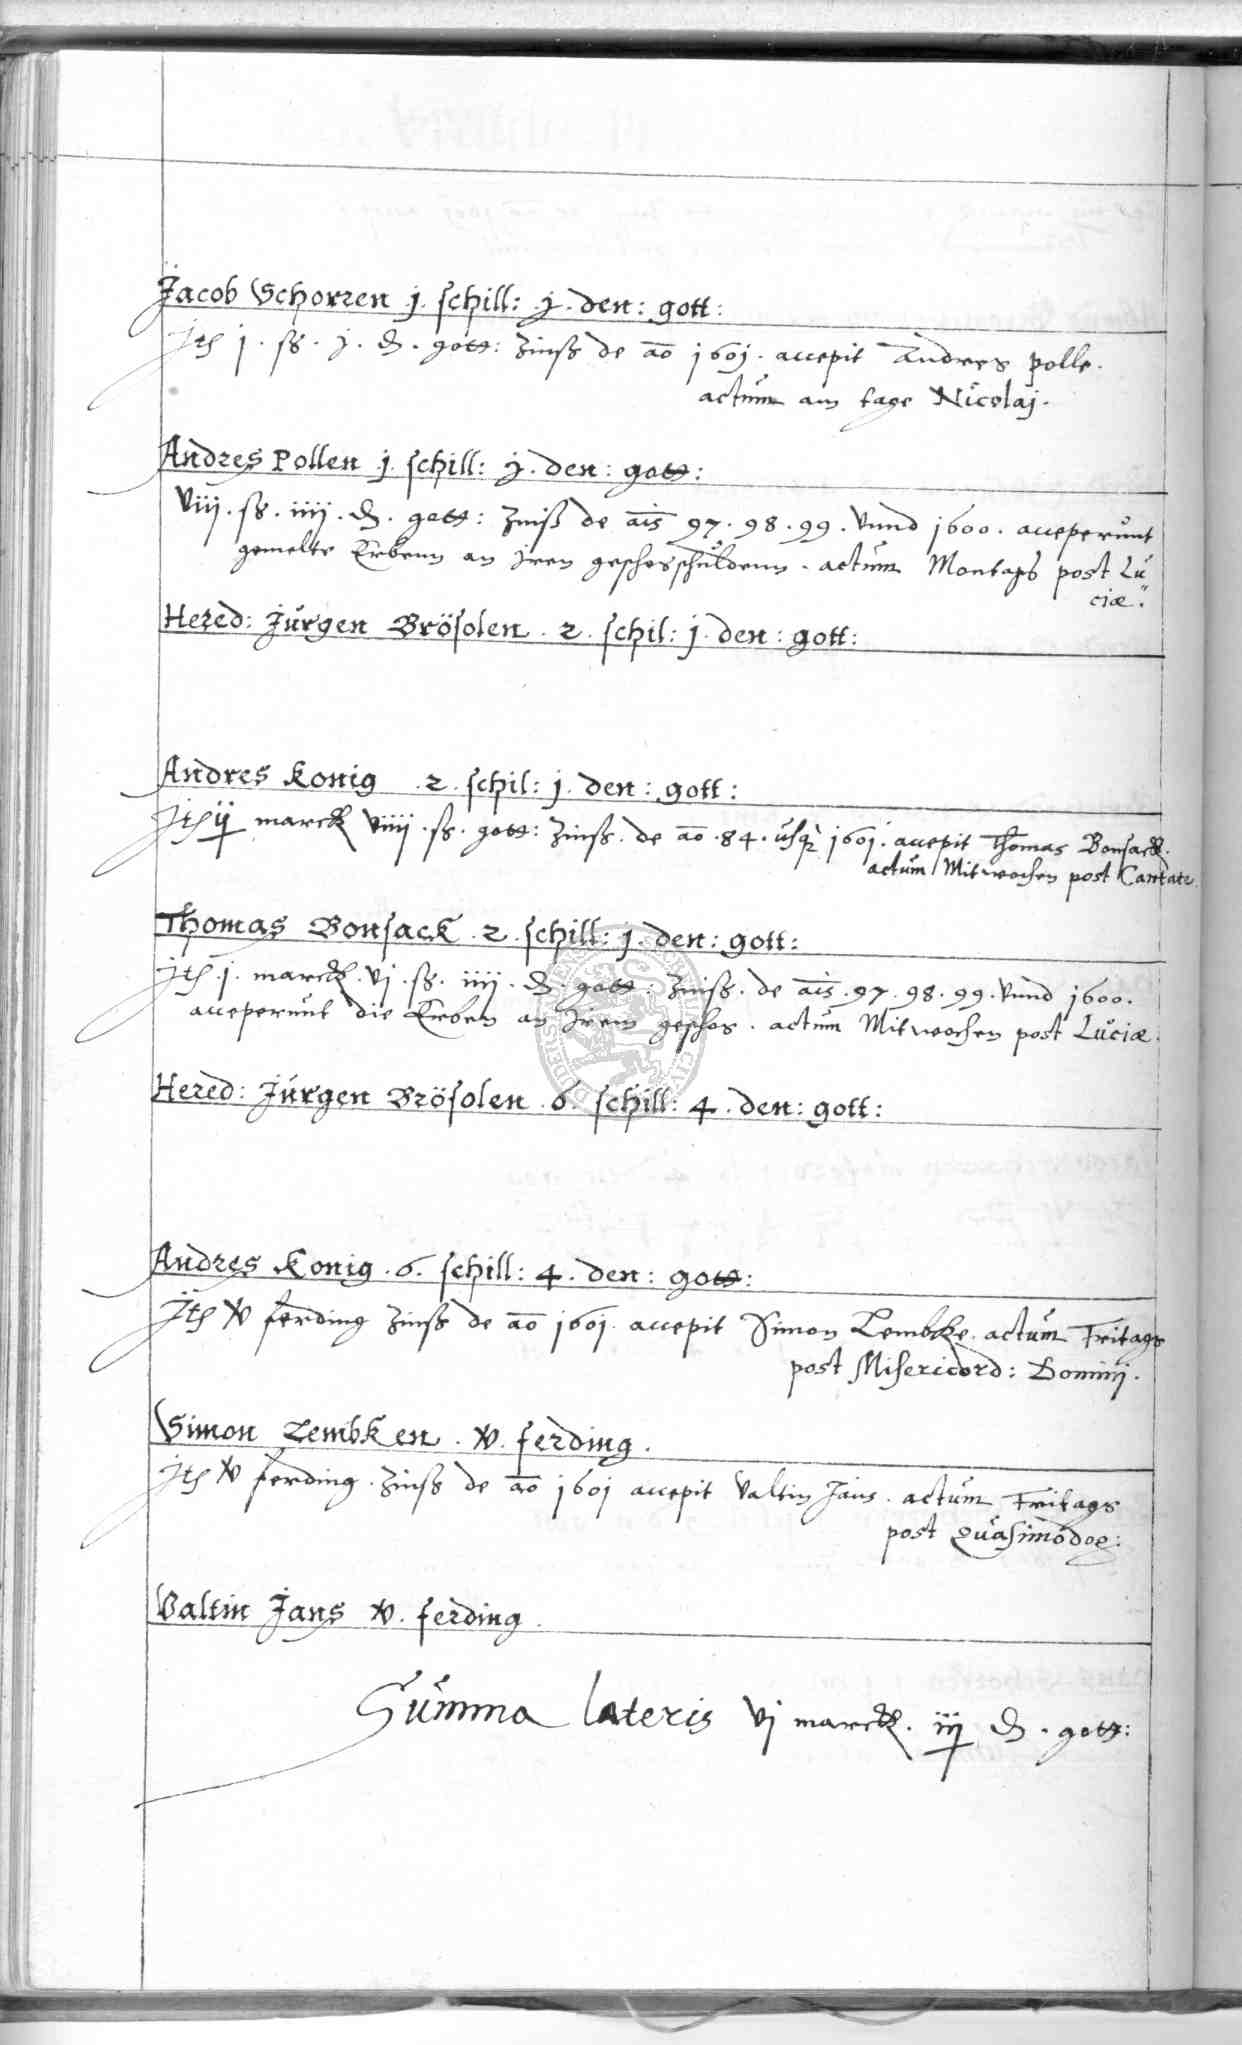 Jacob Schorren .j. schill: .j. den: gott:
Jtem j. ß. j. d. gott: Zinß de ao 1601. accepit Andres Polle.
actum am tage Nicolaj.
Andres Pollen .j. schill: j. den: gott:
viij. ß. iiij. d. gott: Zinß de ais 97. 98. 99. vnnd 1600. acceperunt
gemelte Erbenn an Jren geschosschuldenn. actum Montags post Lu
ciæ.
Hered: Jurgen Brösolen. 2. schil: j. den: gott:
Andres Konig .2. schil: j. den: gott:
Jtem ij marck viiij. ß. gott: Zinß. de ao .84. usq 1601. accepit Thomas Bonsack.
actum Mitwochen post Cantate
Thomas Bonsack .2. schill: j. den: gott:
Jtem .j. marck. vj. ß. iiij. d. gott: Zinß. de ais .97. 98. 99. vnnd 1600.
acceperunt die Erben an Jrem geschos. actum Mitwochen post Luciæ.
Hered: Jurgen Brösolen .6. schill: 4. den: gott:
Andres Konig .6. schill: 4. den: gott:
Jtem v ferding Zinß de ao 1601. accepit Simon Lembcke. actum Fritags
post Misericord: Dominj.
Simon Lembken. v. ferding.
Jtem v ferding. Zinß de ao 1601 accepit Valtin Jans. actum Fritags
post Quasimodog:
Valtin Jans v. ferding.
Summa lateris vj marck. iij d. gott: